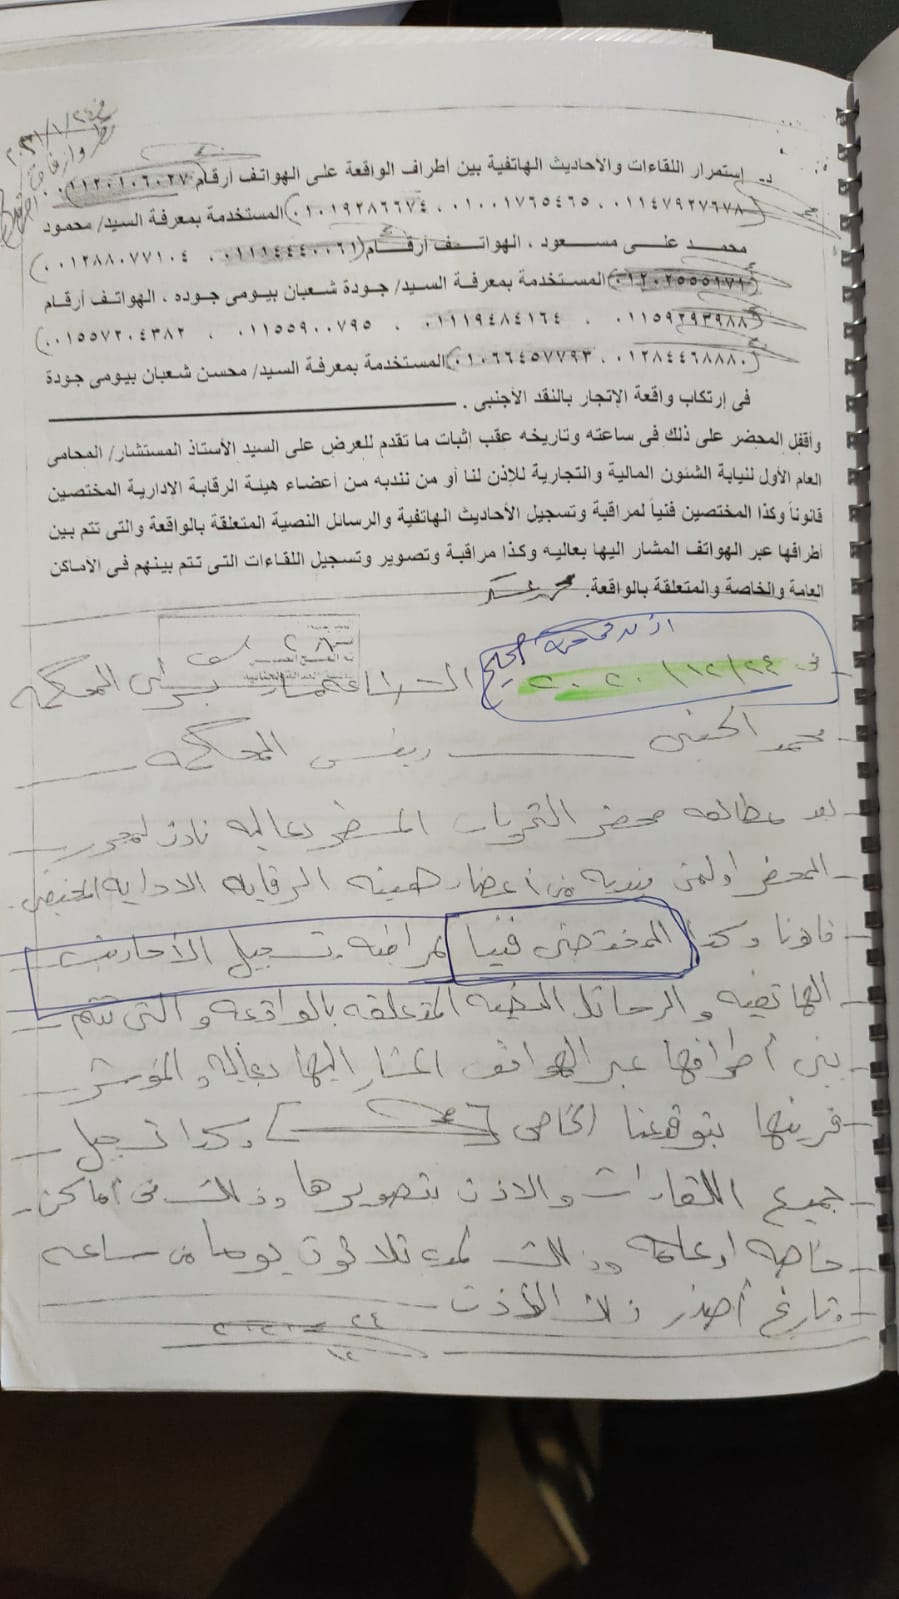 ٢٠٢١/١/٢٤
د- إستمرار اللقاءات والأحاديث الهاتفية بين أطراف الواقعة على الهواتف أرقام (٠١١٢٠١٠٦٠٢٧ ،
٠١١٤٧٩٢٧٦٧٨ ، ٠١٠٠١٧٦٥٤٦٥ ، ٠١٠١٩٢٨٦٦٧٤) المستخدمة بمعرفة السيد/ محمود
محمد على مسعود ، الهواتف أرقام (٠١١١٤٤٤٠٠٦١ ، ٠١٢٨٨٠٧٧١٠٤ ،
٠١٢٠٢٥٥٥١٧١) المستخدمة بمعرفة السيد/ جودة شعبان بيومى جوده ، الهواتف أرقام
(٠١١٥٩٢٩٣٩٨٨ ، ٠١١١٩٤٨٤١٦٤ ، ٠١١٥٥٩٠٠٧٩٥ ، ٠١٥٥٧٢٠٤٣٨٢ ،
٠١٢٨٤٤٦٨٨٨٠ ، ٠١٠٦٦٤٥٧٧٩٣) المستخدمة بمعرفة السيد/ محسن شعبان بيومى جودة
فى إرتكاب واقعة الإتجار بالنقد الأجنبى .
وأقفل المحضر على ذلك فى ساعته وتاريخه عقب إثبات ما تقدم للعرض على السيد الأستاذ المستشار/ المحامى
العام الأول لنيابة الشئون المالية والتجارية للإذن لنا أو من نندبه من أعضاء هيئة الرقابة الإدارية المختصين
قانوناً وكذا المختصين فنياً لمراقبة وتسجيل الأحاديث الهاتفية والرسائل النصية المتعلقة بالواقعة والتى تتم بين
أطرافها عبر الهواتف المشار اليها بعاليه وكذا مراقبة وتصوير وتسجيل اللقاءات التى تتم بينهم فى الأماكن
العامة والخاصة والمتعلقة بالواقعة.
فى ٢٠٢٠/١٢/٢٤ المحكمة
محمد رئيس المحكمة
بعد مطالعة محضر التحريات المسطر بعاليه نأذن لمحرر
المحضر أو لمن يندبه من أعضاء هيئة الرقابة الادارية المختصين
قانونا وكذا المختصين فنيا لمراقبة وتسجيل الأحاديث
الهاتفية والرسائل النصية المتعلقة بالواقعة والتى تتم
بين أطرافها عبر الهواتف المشار اليها بعاليه والمؤشر
قرينها بتوقيعنا الخاص وكذا تسجيل
جميع اللقاءات والاذن بتصويرها وذلك فى أماكن
خاصة أو عامة وذلك لمدة ثلاثون يوما من ساعة
وتاريخ إصدار ذلك الأذن
٢٤
١٢
٢٠٢٠